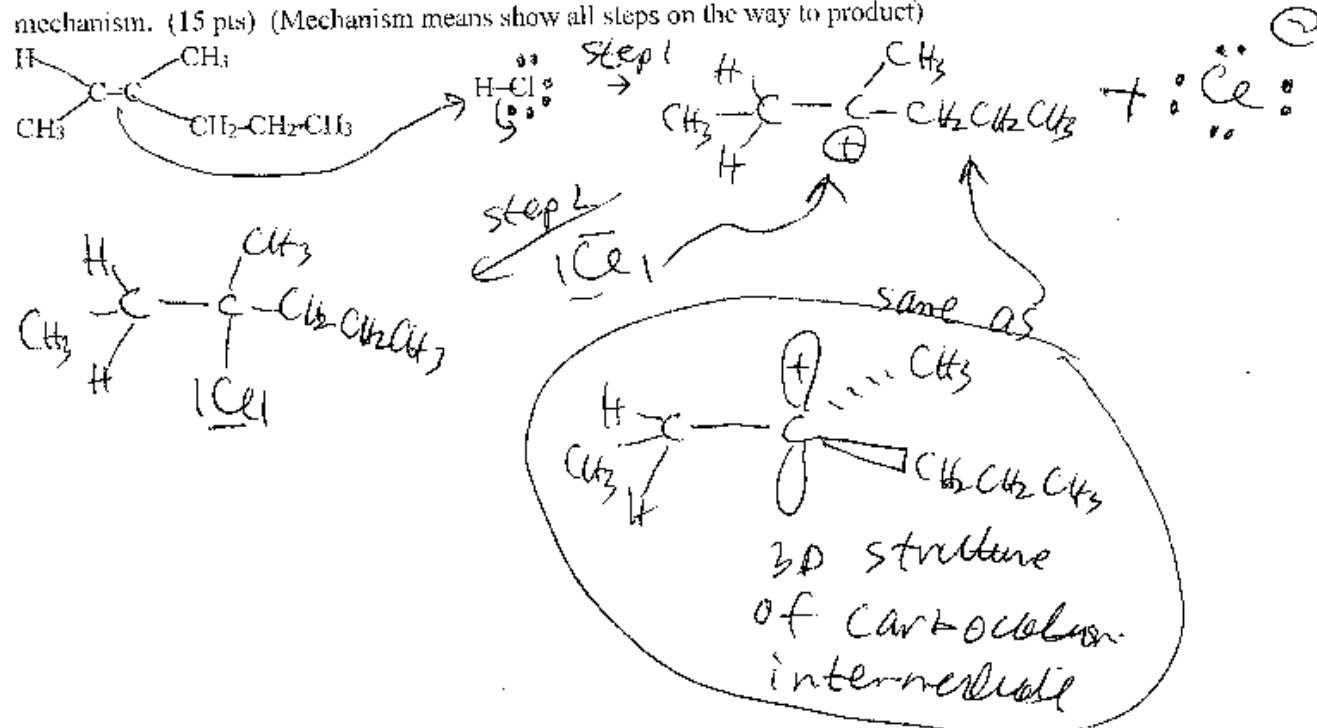 mechanism. (15 pts) (Mechanism means show all steps on the way to product)
H CH3
C=C
CH3 CH2-CH2-CH3
H-Cl
step 1
H CH3
CH3-C-C-CH2CH2CH3 + Cl
H +
step 2
Cl
H CH3
CH3-C-C-CH2CH2CH3
H Cl
same as
+ CH3
H
C C
CH3 CH2CH2CH3
H
3D structure
of carbocation
intermediate